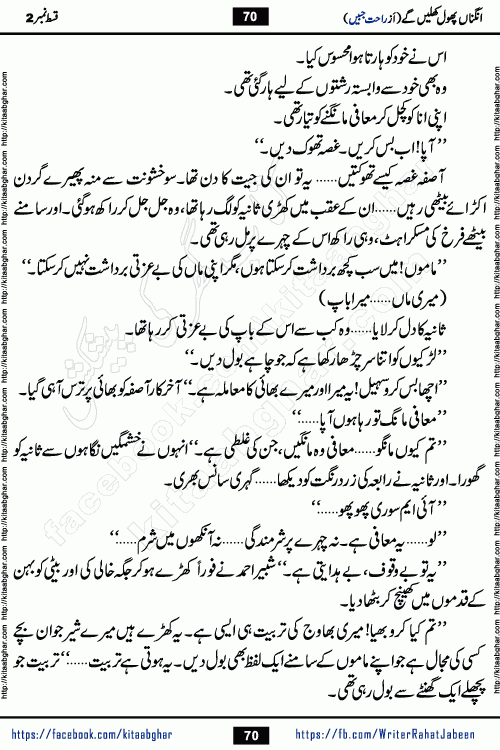 انگناں پھول کھلیں گے (از راحت جبیں)
70
قسط نمبر 2
اس نے خود کو ہارتا ہوا محسوس کیا۔
وہ بھی خود سے وابستہ رشتوں کے لیے ہار گئی تھی۔
اپنی انا کو کچل کر معافی مانگنے کو تیار تھی۔
”آپا! اب بس کریں۔ غصہ تھوک دیں۔“
آصفہ غصہ کیسے تھوکتیں...... یہ تو ان کی جیت کا دن تھا۔ سو خشونت سے منہ پھیرے گردن
اکڑائے بیٹھی رہیں...... ان کے عقب میں کھڑی ثانیہ کو لگ رہا تھا، وہ جل جل کر راکھ ہو گئی۔ اور سامنے
بیٹھے فرخ کی مسکراہٹ، وہی راکھ اس کے چہرے پر مل رہی تھی۔
”ماموں! میں سب کچھ برداشت کر سکتا ہوں، مگر اپنی ماں کی بے عزتی برداشت نہیں کر سکتا۔“
(میری ماں...... میرا باپ)
ثانیہ کا دل کرلایا...... وہ کب سے اس کے باپ کی بے عزتی کر رہا تھا۔
”لڑکیوں کو اتنا سر چڑھا رکھا ہے کہ جو چاہے بول دیں۔“
”اچھا بس کرو سہیل! یہ میرا اور میرے بھائی کا معاملہ ہے۔“ آخر کار آصفہ کو بھائی پر ترس آ ہی گیا۔
”معافی مانگ تو رہا ہوں آپا......“
”تم کیوں مانگو...... معافی وہ مانگیں، جن کی غلطی ہے۔“ انہوں نے خشمگیں نگاہوں سے ثانیہ کو
گھورا۔ اور ثانیہ نے رابعہ کی زرد رنگت کو دیکھا...... گہری سانس بھری۔
”آئی ایم سوری پھوپھو......“
”لو...... یہ معافی ہے۔ نہ چہرے پر شرمندگی...... نہ آنکھوں میں شرم......“
”یہ تو بے وقوف، بے ہدایتی ہے۔“ شبیر احمد نے فوراً کھڑے ہو کر جگہ خالی کی اور بیٹی کو بہن
کے قدموں میں کھینچ کر بٹھا دیا۔
”تم کیا کرو بھیا! میری بھاوج کی تربیت ہی ایسی ہے۔ یہ کھڑے ہیں میرے شیر جوان بچے
کسی کی مجال ہے جو اپنے ماموں کے سامنے ایک لفظ بھی بول دیں۔ یہ ہوتی ہے تربیت......“ تربیت جو
پچھلے ایک گھنٹے سے بول رہی تھی۔
https://facebook.com/kitaabghar
70
https://fb.com/WriterRahatJabeen
http://kitaabghar.com